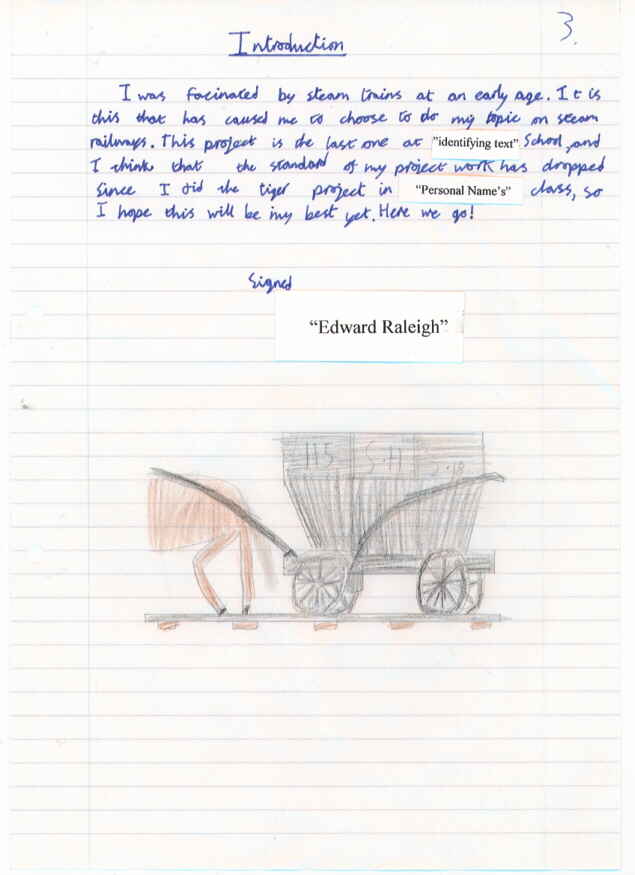 3.
Introduction
I was facinated by steam trains at an early age. It is
this that has caused me to choose to do my topic on steam
railways. This project is the last one at "identifying text" School, and
I think that the standard of my project work has dropped
since I did the tiger project in "Personal Name's" class, so
I hope this will be my best yet. Here we go!
Signed
"Edward Raleigh"
115 S·11